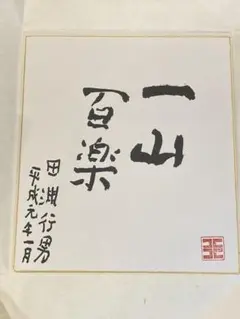 一山
百楽
平成元年一月
田淵行男